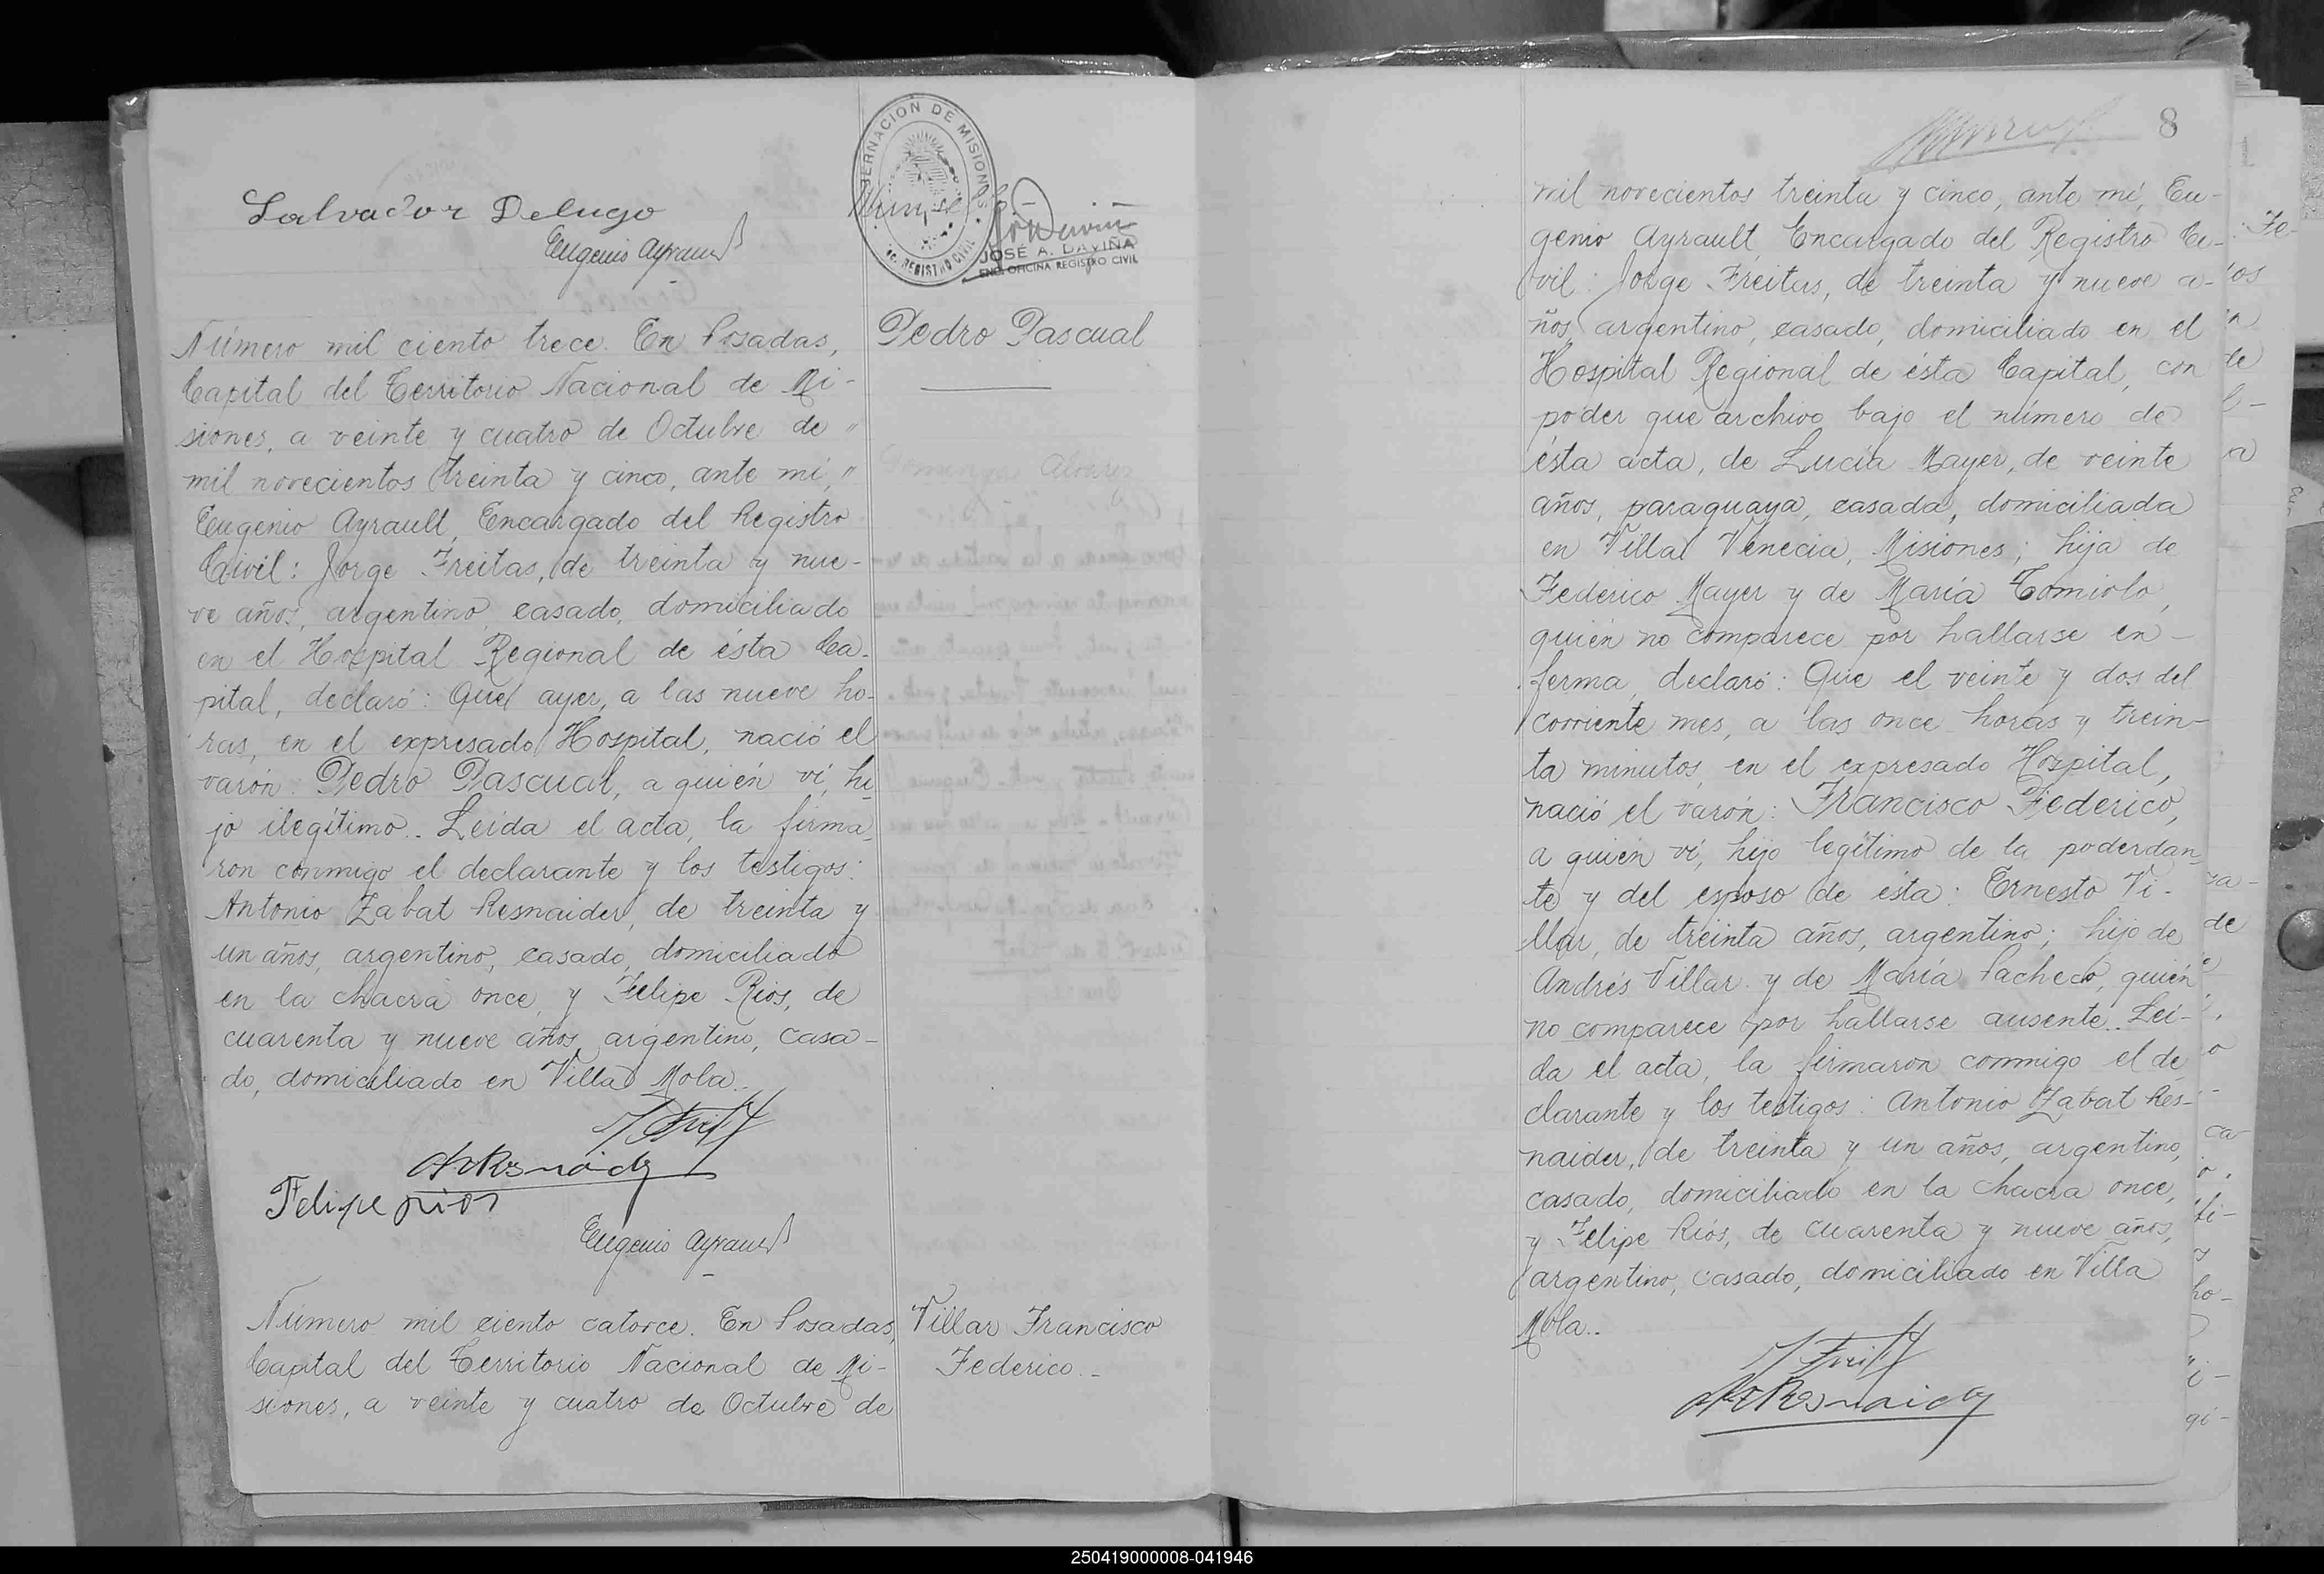 Salvador Delugo
Eugenio Ayrault
GOBERNACIÓN DE MISIONES
OFIC. REGISTRO CIVIL
JOSÉ A. DAVIÑA
ENC. OFICINA REGISTRO CIVIL
Número mil ciento trece. En Posadas,
Capital del Territorio Nacional de Mi-
siones, a veinte y cuatro de Octubre de "
mil novecientos treinta y cinco, ante mí, "
Eugenio Ayrault, Encargado del Registro
Civil: Jorge Freitas, de treinta y nue-
ve años, argentino, casado, domiciliado
en el Hospital Regional de ésta Ca-
pital, declaró: Que ayer, a las nueve ho-
ras, en el expresado Hospital, nació el
varón: Pedro Pascual, a quién ví, hi-
jo ilegítimo.. Leída el acta, la firma-
ron conmigo el declarante y los testigos:
Antonio Zabat Resnaider, de treinta y
un años, argentino, casado, domiciliado
en la chacra once, y Felipe Rios, de
cuarenta y nueve años, argentino, casa-
do, domiciliado en Villa Mola..
Felipe rios
Eugenio Ayrault
Pedro Pascual
Número mil ciento catorce. En Posadas,
Capital del Territorio Nacional de Mi-
siones, a veinte y cuatro de Octubre de
Villar Francisco
Federico..
8
mil novecientos treinta y cinco, ante mí, Eu-
genio Ayrault, Encargado del Registro Ci-
vil: Jorge Freitas, de treinta y nueve a-
ños, argentino, casado, domiciliado en el
Hospital Regional de ésta Capital, con
poder que archivo bajo el número de
ésta acta, de Lucía Mayer, de veinte
años, paraguaya, casada, domiciliada
en Villa Venecia, Misiones; hija de
Federico Mayer y de María Comiolo,
quién no comparece por hallarse en-
ferma, declaró: Que el veinte y dos del
corriente mes, a las once horas y trein-
ta minutos, en el expresado Hospital,
nació el varón: Francisco Federico,
a quién ví, hijo legítimo de la poderdan-
te y del esposo de ésta: Ernesto Vi-
llar, de treinta años, argentino; hijo de
Andrés Villar y de María Pacheco, quién
no comparece por hallarse ausente.. Leí-
da el acta, la firmaron conmigo el de-
clarante y los testigos: Antonio Zabat Res-
naider, de treinta y un años, argentino,
casado, domiciliado en la chacra once,
y Felipe Ríos, de cuarenta y nueve años,
argentino, casado, domiciliado en Villa
Mola..
250419000008-041946